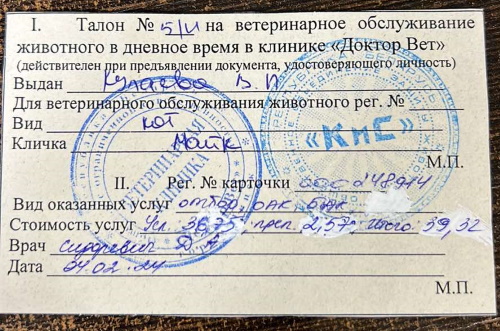 I. Талон № 5/и на ветеринарное обслуживание
животного в дневное время в клинике «Доктор Вет»
(действителен при предъявлении документа, удостоверяющего личность)
Выдан В. П
Для ветеринарного обслуживания животного рег. №
Вид кот
Кличка Майк
М.П.
«КиС»
ВЕТЕРИНАРНАЯ
КЛИНИКА
II. Рег. № карточки
Вид оказанных услуг ОАК БАК
Стоимость услуг Усл. 36,75 преп. 2,57 Итого: 39,32
Врач Сидаревич
Дата 24.02.24
М.П.